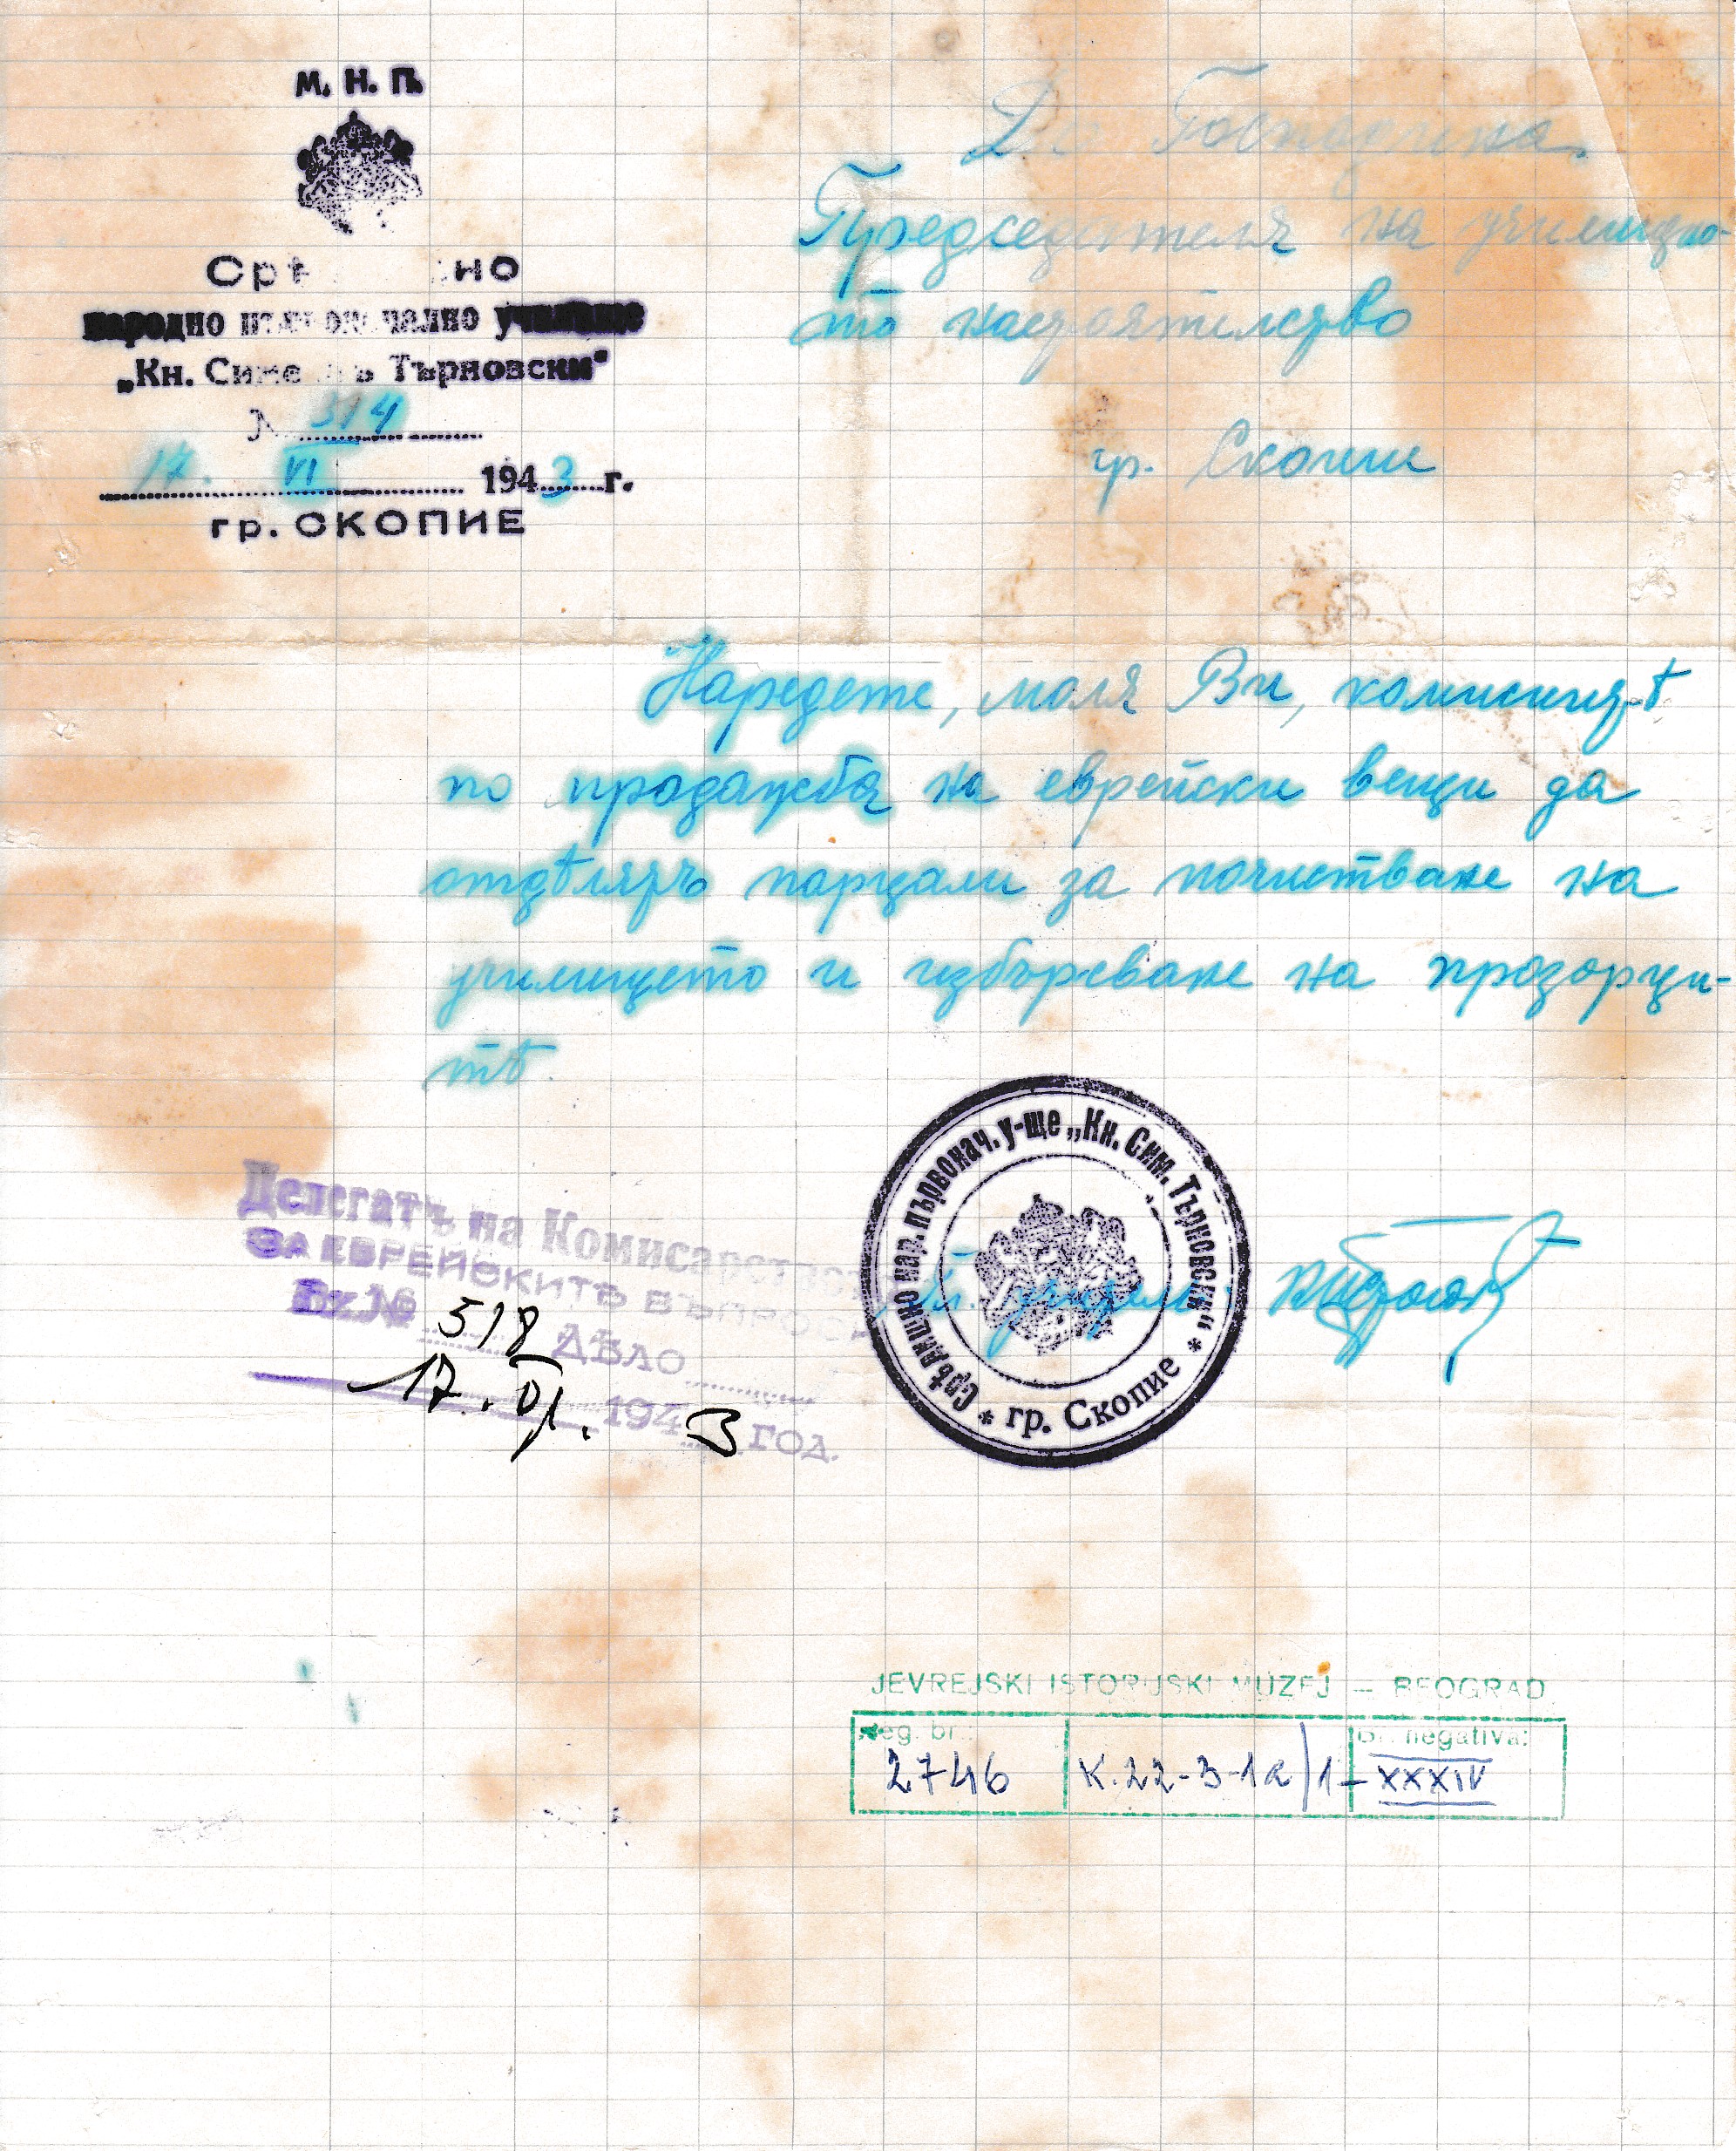 М. Н. П.
Срѣ но
народно първоначално училище
„Кн. Симеонъ Търновски“
№ 314
17. VI 1943 г.
гр. СКОПИЕ
До Господина
Председателя на училищно-
то настоятелство
гр. Скопие
Наредете, моля Ви, комисията
по продажба на еврейски вещи да
отдѣлятъ парцали за почистване на
училището и избърсване на прозорци-
тѣ.
Делегатъ на Комисарството
ЗА ЕВРЕЙСКИТѢ ВЪПРОСИ
Вх. № 518 ДѢЛО
17. VI. 1943 ГОД.
Срѣдищно нар. първонач. у-ще „Кн. Сим. Търновски“
* гр. Скопие *
Гл. учитель:
JEVREJSKI ISTORIJSKI MUZEJ – BEOGRAD
Reg. br.: Br. negativa:
2746 K.22-3-1a/1- XXXIV